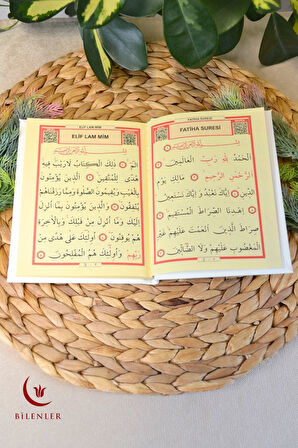 FATİHA SURESİ
FATİHA SURESİ
اَلْحَمْدُ لِلّٰهِ رَبِّ الْعَالَمِينَ
اَلرَّحْمٰنِ الرَّحِيمِ مَالِكِ يَوْمِ
الدِّينِ اِيَّاكَ نَعْبُدُ وَاِيَّاكَ نَسْتَعِينُ
اِهْدِنَا الصِّرَاطَ الْمُسْتَقِيمَ
صِرَاطَ الَّذِينَ اَنْعَمْتَ عَلَيْهِمْ غَيْرِ
الْمَغْضُوبِ عَلَيْهِمْ وَلَا الضَّالِّينَ
ELİF LAM MİM
ELİF LAM MİM
الٓمٓ ذٰلِكَ الْكِتَابُ لَا رَيْبَ فِيهِ
هُدًى لِلْمُتَّقِينَ اَلَّذِينَ يُؤْمِنُونَ
بِالْغَيْبِ وَيُقِيمُونَ الصَّلٰوةَ وَمِمَّا رَزَقْنَاهُمْ
يُنْفِقُونَ وَالَّذِينَ يُؤْمِنُونَ بِمَا اُنْزِلَ
اِلَيْكَ وَمَا اُنْزِلَ مِنْ قَبْلِكَ وَبِالْاٰخِرَةِ
هُمْ يُوقِنُونَ اُولٰئِكَ عَلٰى هُدًى مِنْ
رَبِّهِمْ وَاُولٰئِكَ هُمُ الْمُفْلِحُونَ
BİLENLER